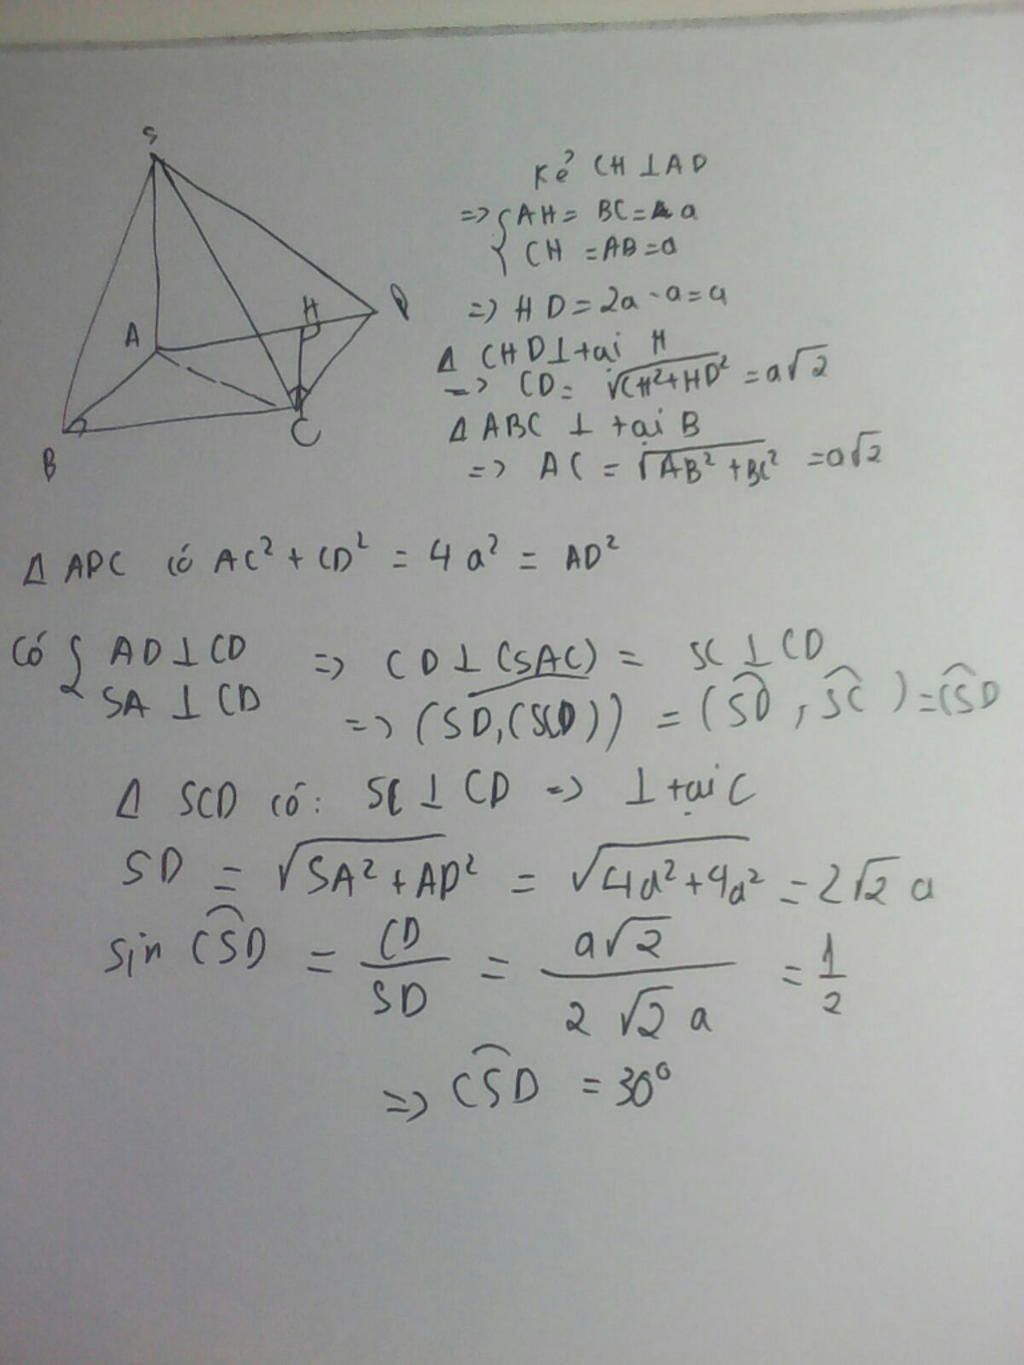 S
A
H
D
B
C
Kẻ CH ⊥ AD
=> { AH = BC = a
{ CH = AB = a
=> HD = 2a - a = a
Δ CHD ⊥ tại H
=> CD = √(CH² + HD²) = a√2
Δ ABC ⊥ tại B
=> AC = √(AB² + BC²) = a√2
Δ ADC có AC² + CD² = 4a² = AD²
Có { AD ⊥ CD
{ SA ⊥ CD
=> CD ⊥ (SAC) = SC ⊥ CD
=> (SD, (SCD)) = (SD, SC) = CSD
Δ SCD có: SC ⊥ CD => ⊥ tại C
SD = √(SA² + AD²) = √(4a² + 4a²) = 2√2 a
sin CSD = CD/SD = a√2 / 2√2 a = 1/2
=> CSD = 30°